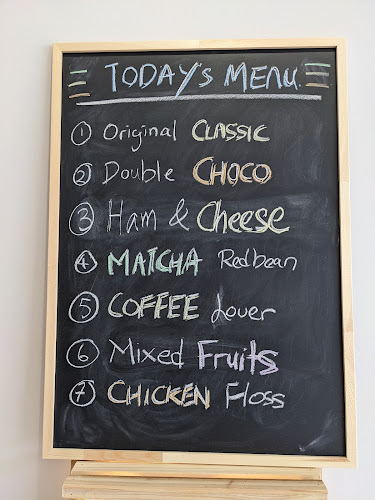 TODAY'S MENU.
① Original CLASSIC
② Double CHOCO
③ Ham & Cheese
④ MATCHA Redbean
⑤ COFFEE Lover
⑥ Mixed Fruits
⑦ CHICKEN Floss